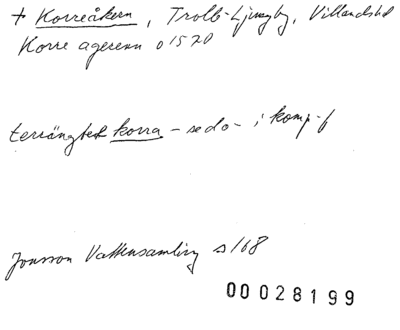 + Korreåkern, Trolle-Ljungby, Villandshd
Korre agerenn o 1570
terrängbet korra - se do - i komp-f
Jonsson Vattensamling s 168
00028199